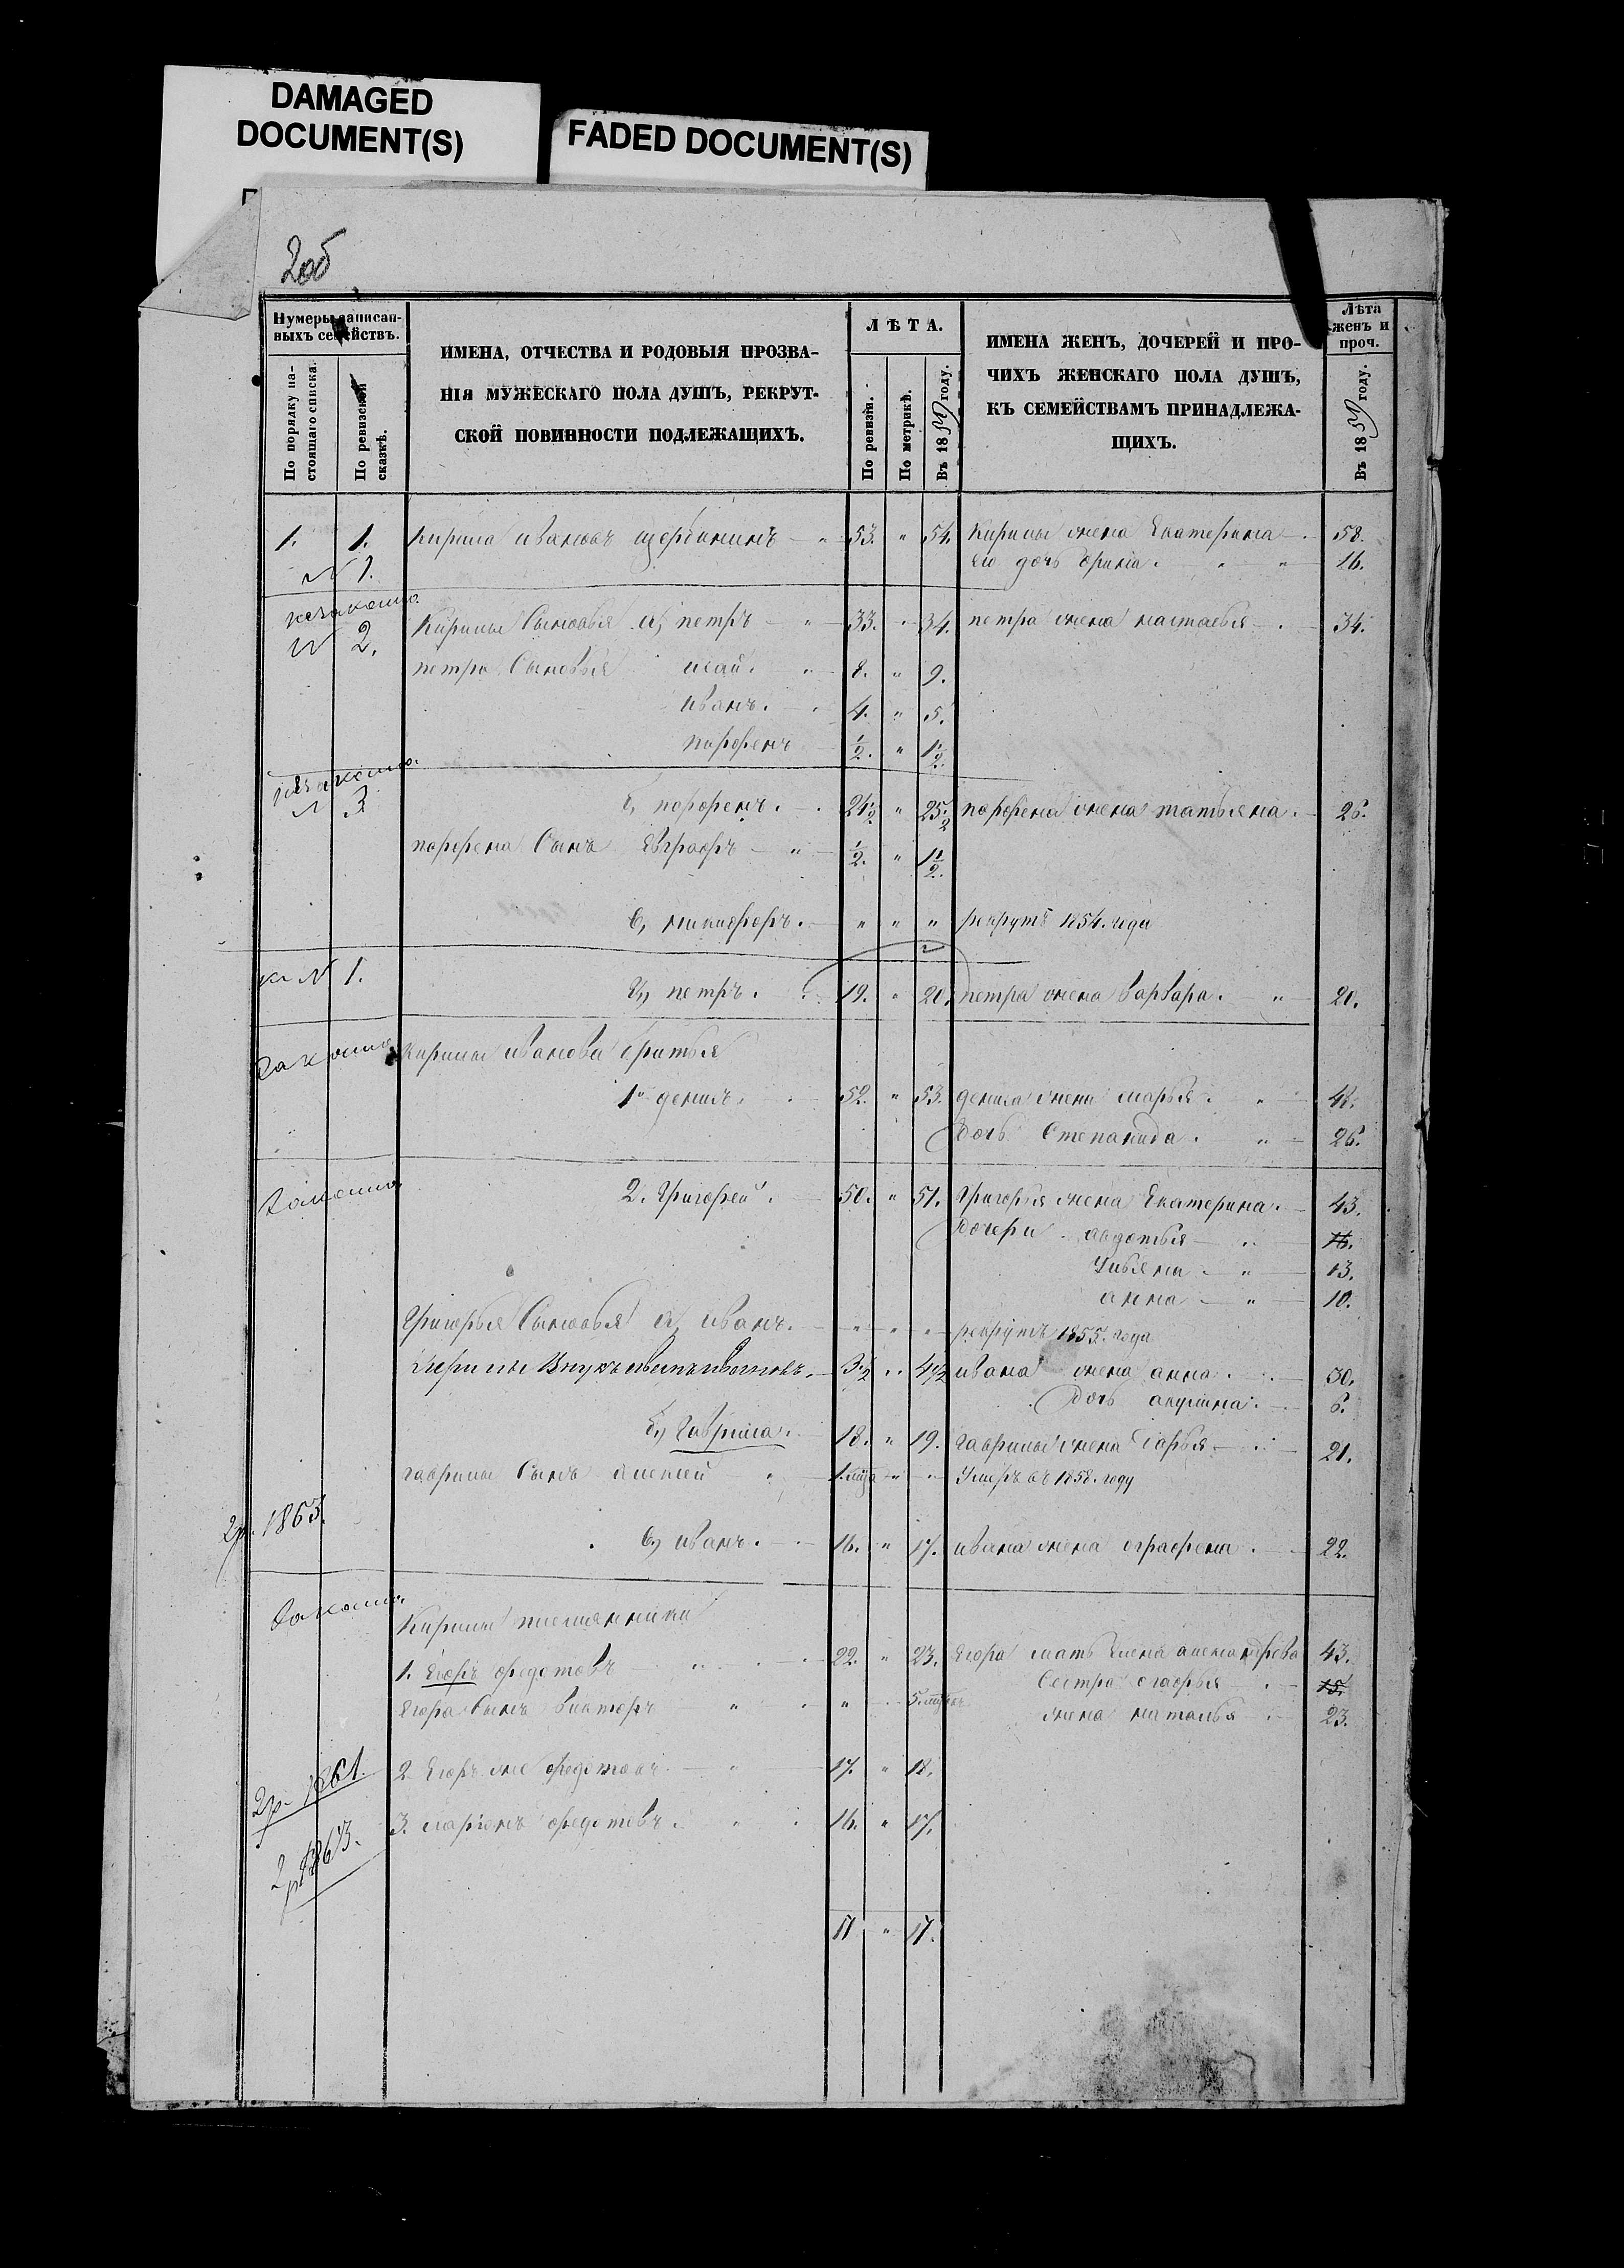 DAMAGED
DOCUMENT(S)
FADED DOCUMENT(S)
2об
Нумеры записан-
ныхъ семействъ.
По порядку на-
стоящаго списка.
По ревизской
сказкѣ.
ИМЕНА, ОТЧЕСТВА И РОДОВЫЯ ПРОЗВА-
НІЯ МУЖЕСКАГО ПОЛА ДУШЪ, РЕКРУТ-
СКОЙ ПОВИННОСТИ ПОДЛЕЖАЩИХЪ.
ЛѢТА.
По ревизіи.
По метрикѣ.
Въ 1859 году.
ИМЕНА ЖЕНЪ, ДОЧЕРЕЙ И ПРО-
ЧИХЪ ЖЕНСКАГО ПОЛА ДУШЪ,
КЪ СЕМЕЙСТВАМЪ ПРИНАДЛЕЖА-
ЩИХЪ.
Лѣта
женъ и
проч.
Въ 1859 году.
1. 1. Кирила ивановъ щербининъ 53. " 54. Кирилы жена Екатерина 58.
№ 1. его дочь Ирина. 16.
незаконно
№ 2. Кирилы Сыновья а, петръ 33. " 34. петра жена настасья 34.
петра Сыновья исай. 8. " 9.
иванъ. 4. " 5.
парфенъ 1/2. " 1 1/2.
незаконно
№ 3 б, парфенъ. 24 1/2 " 25 1/2 парфена жена татьяна. 26.
парфена Сынъ Евграфъ " 1/2. " 1 1/2.
в, никифоръ. " " " рекрутъ 1854. года
къ № 1. г, петръ. 19. " 20. петра жена варвара. 20.
Законно Кирилы иванова братья
1. денисъ. 52. " 53. дениса жена марья. 42.
дочь Степанида. 26.
Законно 2. Григорей. 50. " 51. Григорья жена Екатерина. 43.
дочери авдотья 16.
Ульяна 13.
анна 10.
Григорья Сыновья а, иванъ. " " " рекрутъ 1855. года
Кирилы Внукъ иванъ ивановъ. 3 1/2 " 4 1/2 ивана жена анна. 30.
дочь акулина. 6.
б, Гаврила. 18. " 19. Гаврилы жена Дарья 21.
Гаврилы Сынъ алексей " Умеръ въ 1858. году
2р. 1863. в, иванъ. 16. " 17. ивана жена аграфена. 22.
Законно Кирилы племянники
1. Егоръ федотовъ 22. " 23. Егора мать Елена александрова 43.
Сестра 15.
Егора Сынъ викторъ " " жена наталья 23.
2р. 1861. 2. Егоръ же федотовъ 17. " 18.
2р. 1863. 3. федотовъ. 16. " 17.
17 " 17.